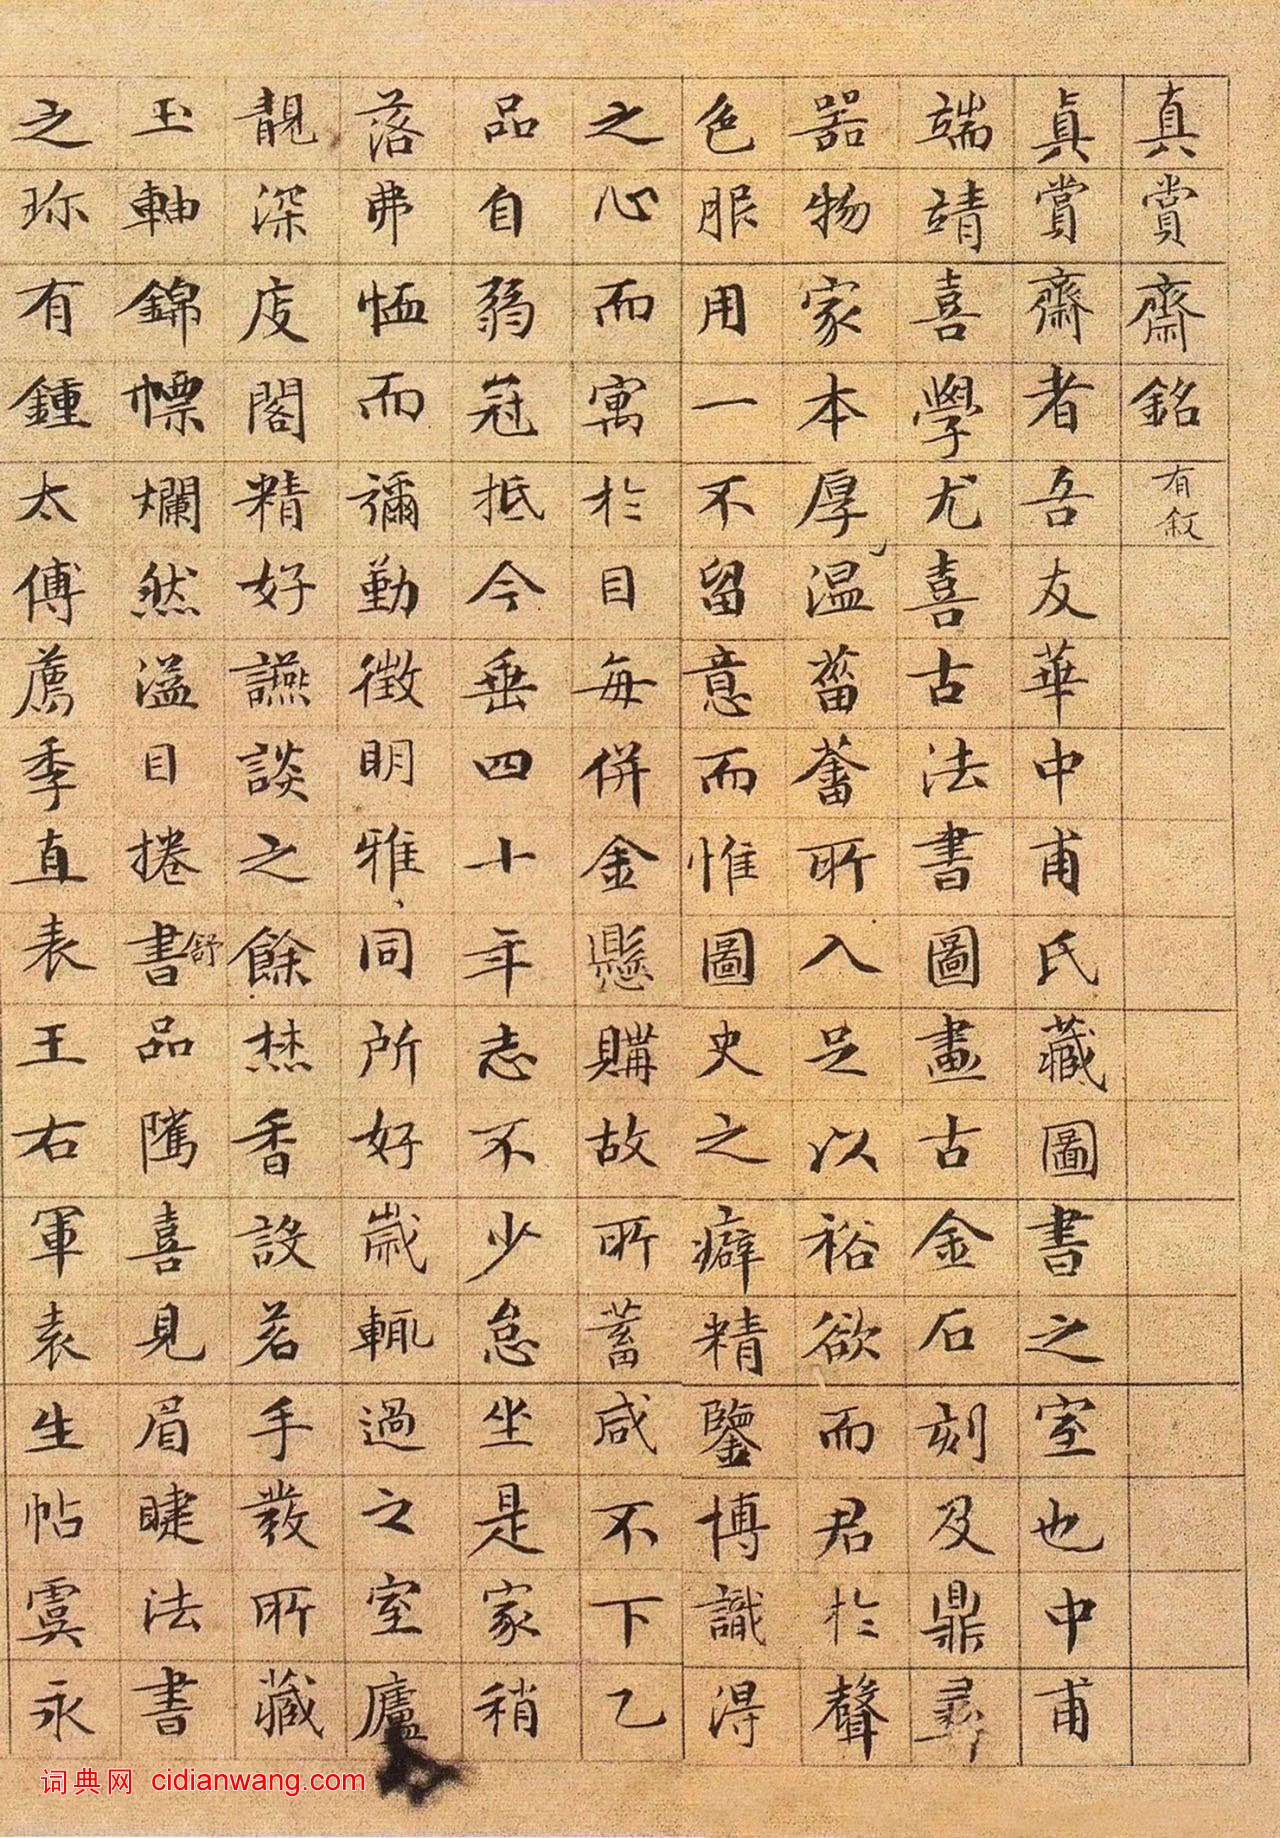 真賞齋銘有敘
真賞齋者吾友華中甫氏藏圖書之室也中甫
端靖喜學尤喜古法書圖畫古金石刻及鼎彝
器物家本厚溫菑畬所入足以裕欲而君於聲
色服用一不留意而惟圖史之癖精鑒博識得
之心而寓於目每併金懸購故所蓄咸不下乙
品自弱冠抵今垂四十年志不少怠坐是家稍
落弗恤而彌勤徵明雅同所好歲輒過之室廬
靚深庋閣精好讌談之餘焚香設茗手發所藏
玉軸錦幖爛然溢目捲舒書品隲喜見眉睫法書
之珎有鍾太傅薦季直表王右軍袁生帖虞永
词典网 cidianwang.com